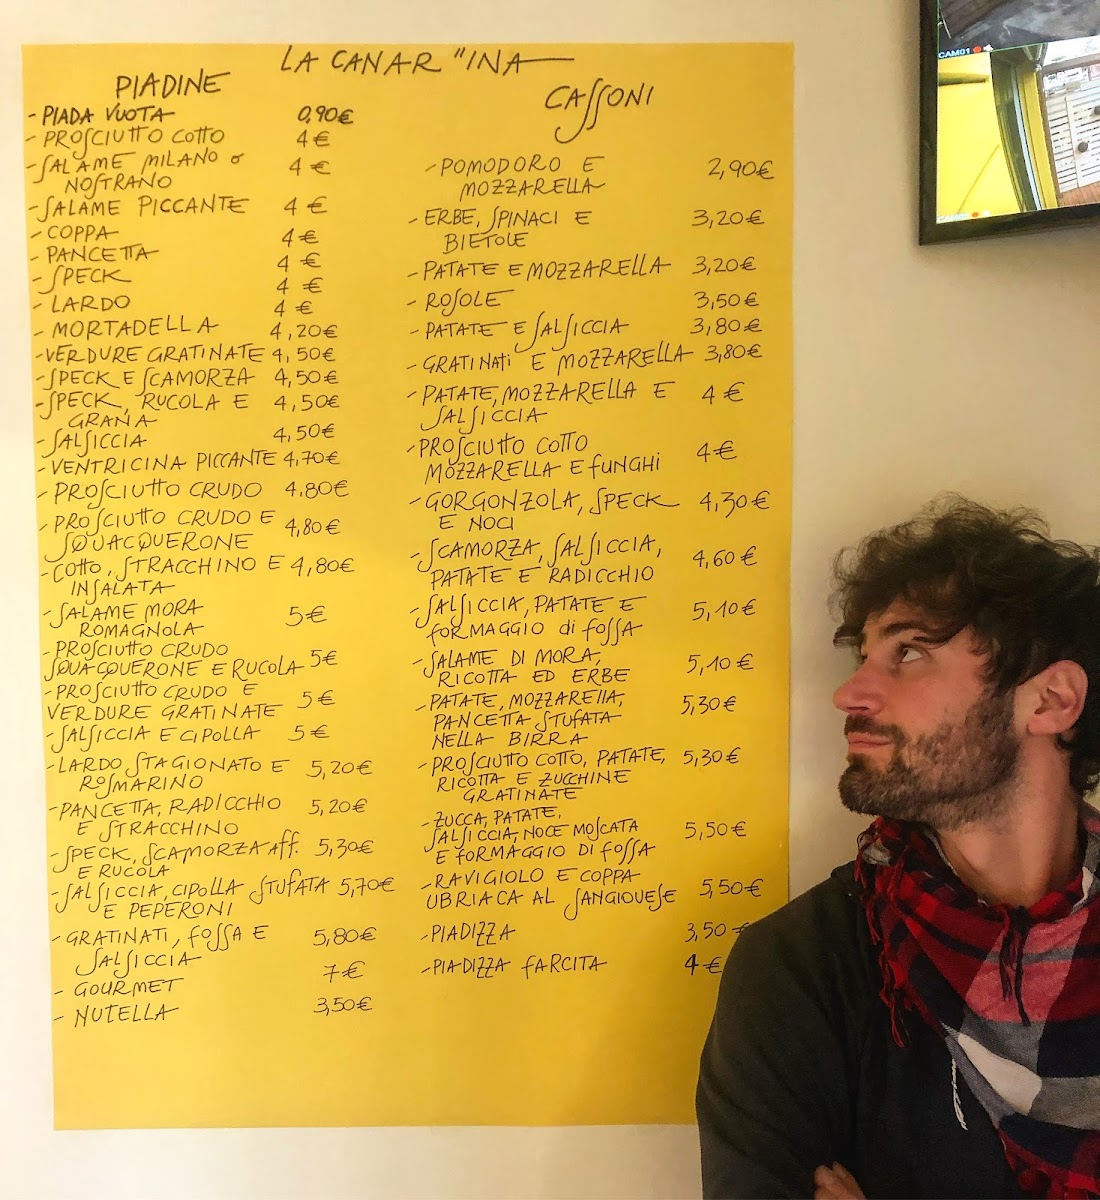 LA CANAR "INA
PIADINE
- PIADA VUOTA 0,90€
- PROSCIUTTO COTTO 4€
- SALAME MILANO o 4€
NOSTRANO
- SALAME PICCANTE 4€
- COPPA 4€
- PANCETTA 4€
- SPECK 4€
- LARDO 4€
- MORTADELLA 4,20€
- VERDURE GRATINATE 4,50€
- SPECK E SCAMORZA 4,50€
- SPECK, RUCOLA E 4,50€
GRANA
- SALSICCIA 4,50€
- VENTRICINA PICCANTE 4,70€
- PROSCIUTTO CRUDO 4,80€
- PROSCIUTTO CRUDO E 4,80€
SQUACQUERONE
- COTTO, STRACCHINO E 4,80€
INSALATA
- SALAME MORA 5€
ROMAGNOLA
- PROSCIUTTO CRUDO
SQUACQUERONE E RUCOLA 5€
- PROSCIUTTO CRUDO E 5€
VERDURE GRATINATE
- SALSICCIA E CIPOLLA 5€
- LARDO STAGIONATO E 5,20€
ROSMARINO
- PANCETTA, RADICCHIO 5,20€
E STRACCHINO
- SPECK, SCAMORZA AFF. 5,30€
E RUCOLA
- SALSICCIA, CIPOLLA STUFATA 5,70€
E PEPERONI
- GRATINATI, FOSSA E 5,80€
SALSICCIA
- GOURMET 7€
- NUTELLA 3,50€
CASSONI
- POMODORO E 2,90€
MOZZARELLA
- ERBE, SPINACI E 3,20€
BIETOLE
- PATATE E MOZZARELLA 3,20€
- ROSOLE 3,50€
- PATATE E SALSICCIA 3,80€
- GRATINATI E MOZZARELLA 3,80€
- PATATE, MOZZARELLA E 4€
SALSICCIA
- PROSCIUTTO COTTO 4€
MOZZARELLA E FUNGHI
- GORGONZOLA, SPECK 4,30€
E NOCI
- SCAMORZA, SALSICCIA, 4,60€
PATATE E RADICCHIO
- SALSICCIA, PATATE E 5,10€
FORMAGGIO di FOSSA
- SALAME DI MORA, 5,10€
RICOTTA ED ERBE
- PATATE, MOZZARELLA, 5,30€
PANCETTA STUFATA
NELLA BIRRA
- PROSCIUTTO COTTO, PATATE, 5,30€
RICOTTA E ZUCCHINE
GRATINATE
- ZUCCA, PATATE,
SALSICCIA, NOCE MOSCATA 5,50€
E FORMAGGIO DI FOSSA
- RAVIGIOLO E COPPA 5,50€
UBRIACA AL SANGIOVESE
- PIADIZZA 3,50€
- PIADIZZA FARCITA 4€
CAM01